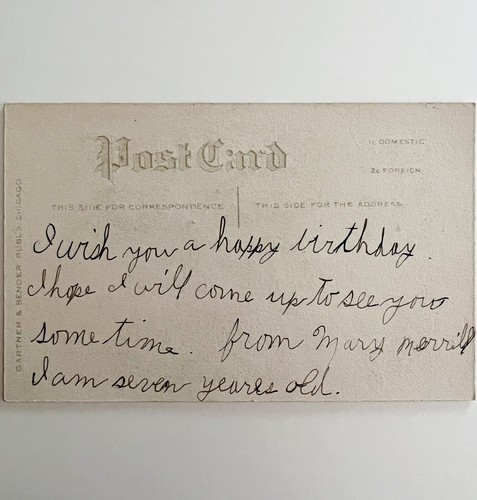 Post Card
1c DOMESTIC
2c FOREIGN
THIS SIDE FOR CORRESPONDENCE
THIS SIDE FOR THE ADDRESS
GARTNER & BENDER PUBLS. CHICAGO
I wish you a happy birthday.
I hope I will come up to see you
some time. from Mary Merrill
I am seven yeares old.